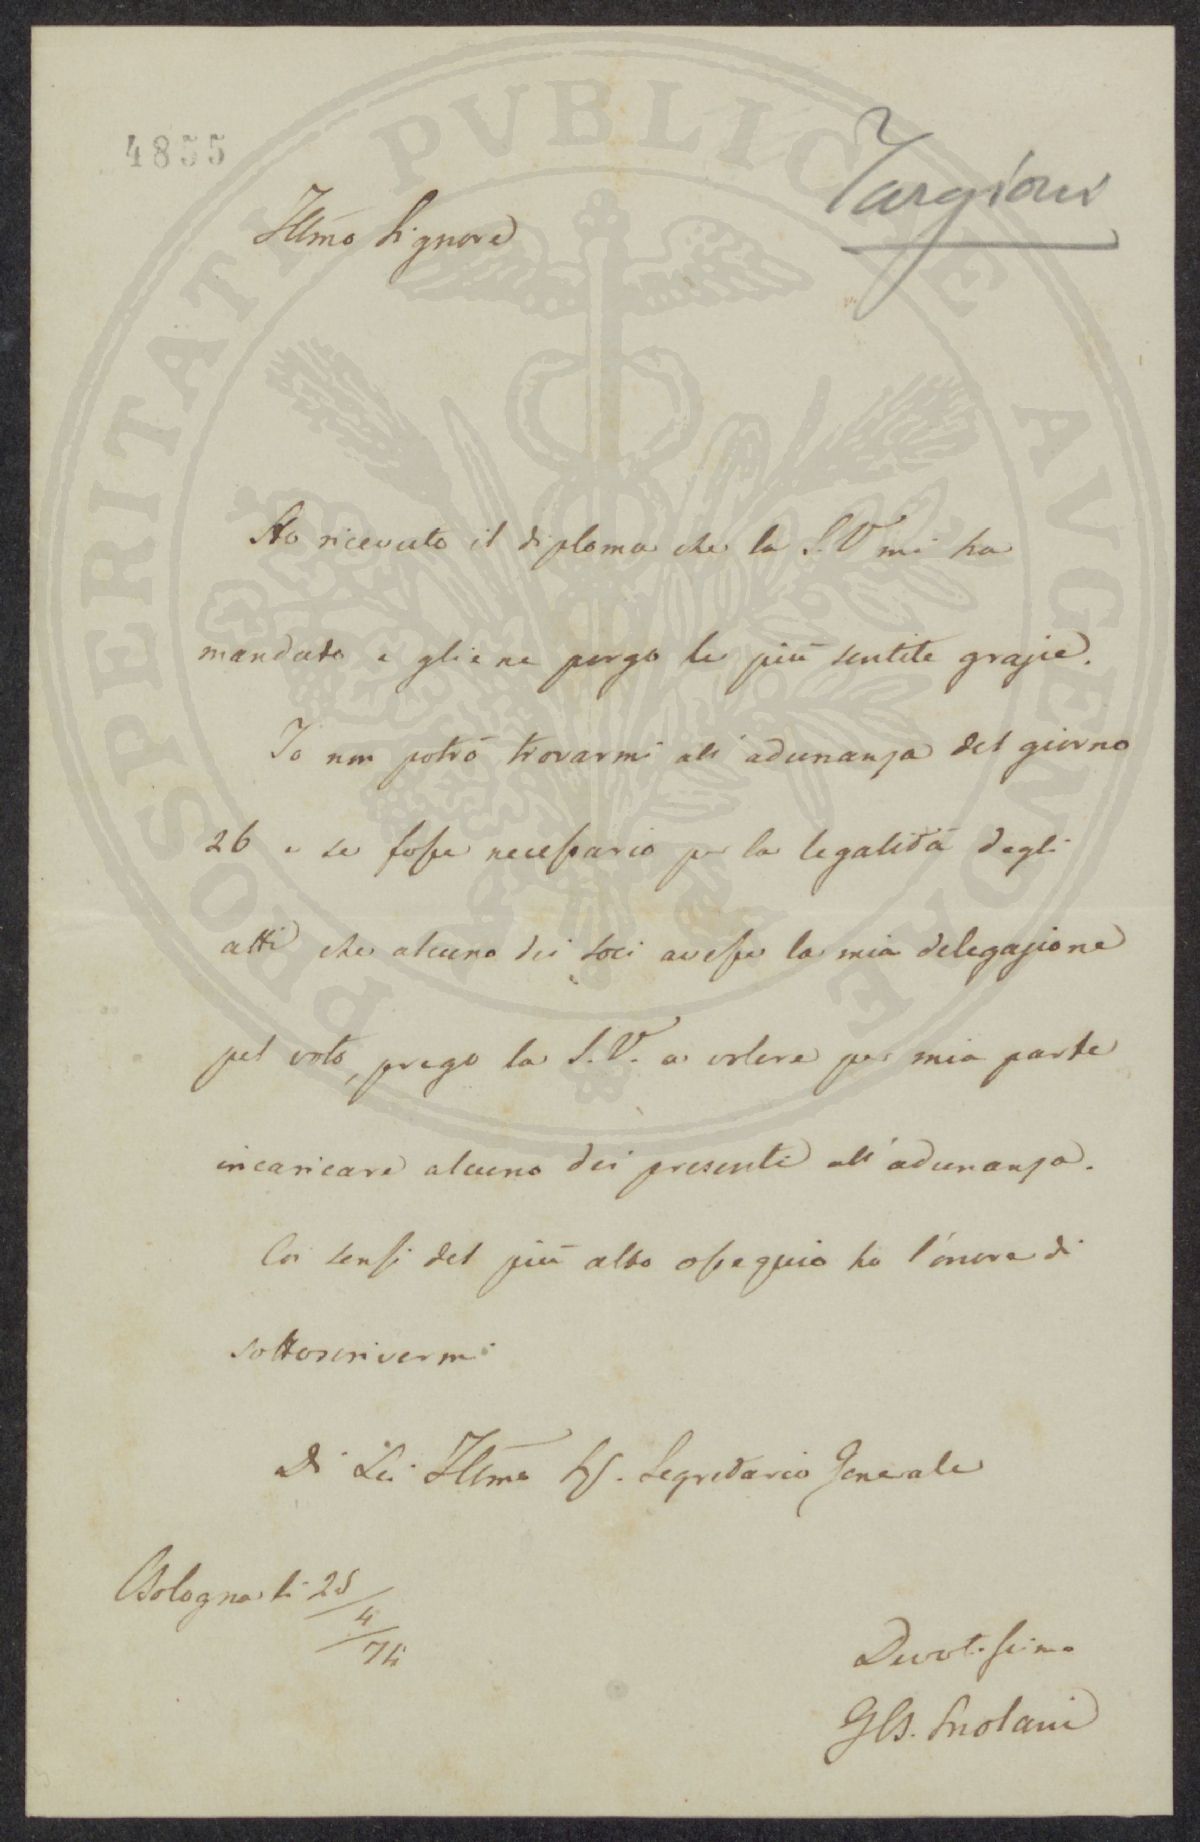 4855
Targioni
Illmo Signore
Ho ricevuto il diploma che la S. V. mi ha
mandato e gliene porgo le più sentite grazie.
Io non potrò trovarmi all'adunanza del giorno
26 e se fosse necessario per la legalità degli
atti che alcuno dei soci avesse la mia delegazione
pel voto, prego la S. V. a volere per mia parte
incaricare alcuno dei presenti all'adunanza.
Coi sensi del più alto ossequio ho l'onore di
sottoscrivermi
Di Lei Illmo Sig. Segretario Generale
Bologna li 25/4/74
Devotissimo
GB. Ercolani
PROSPERITATI PVBLICAE AVGENDAE